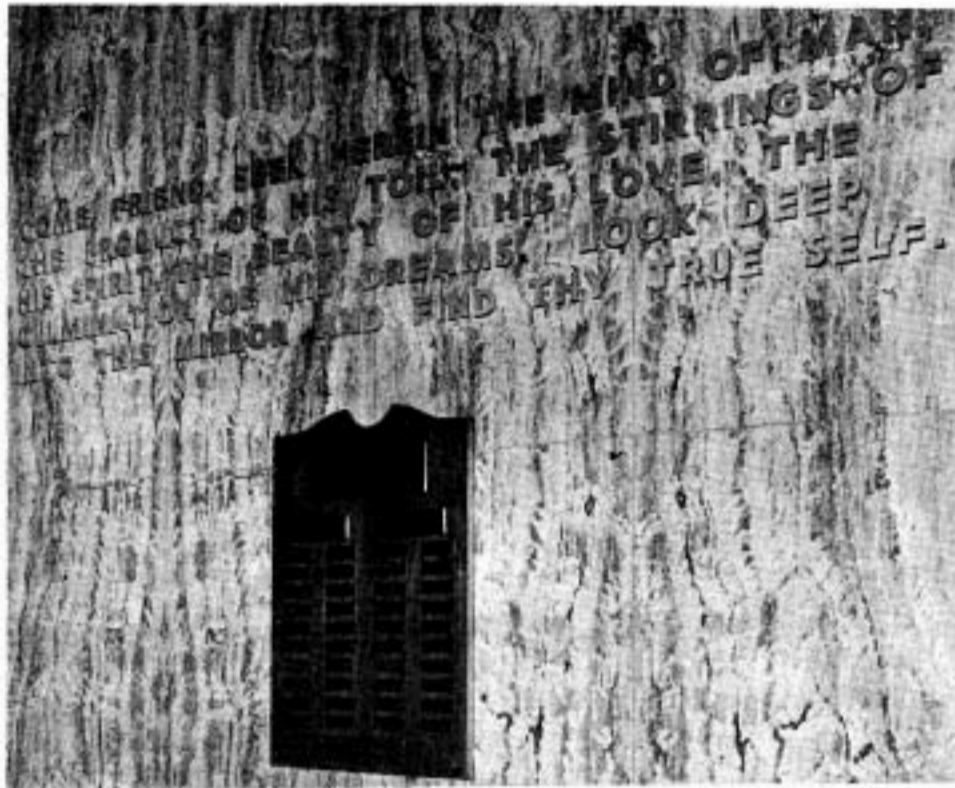 COME FRIEND, SEEK HEREIN THE MIND OF MAN,
THE PRODUCT OF HIS TOIL, THE STIRRINGS OF
HIS SPIRIT, THE BEAUTY OF HIS LOVE, THE
CULMINATION OF HIS DREAMS, LOOK DEEP
INTO THIS MIRROR AND FIND THY TRUE SELF.